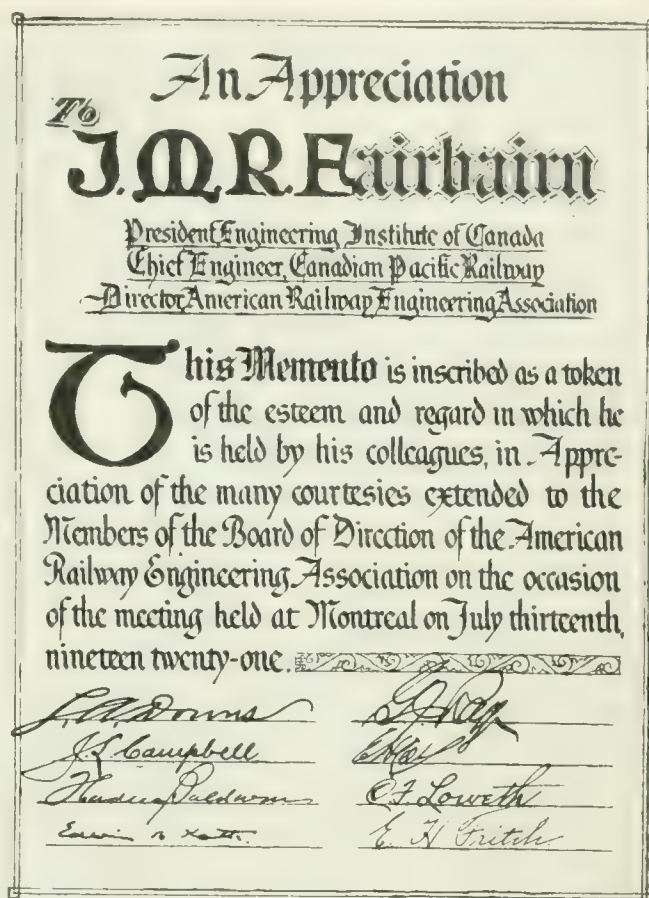 An Appreciation
To
J.M.R. Fairbairn
President Engineering Institute of Canada
Chief Engineer, Canadian Pacific Railway
Director, American Railway Engineering Association
This Memento is inscribed as a token
of the esteem and regard in which he
is held by his colleagues, in Appre-
ciation of the many courtesies extended to the
Members of the Board of Direction of the American
Railway Engineering Association on the occasion
of the meeting held at Montreal on July thirteenth,
nineteen twenty-one.
L.A. Downs
G.J. Ray
J.L. Campbell
Hadley Baldwin
C.F. Loweth
Edwin
E H Fritch